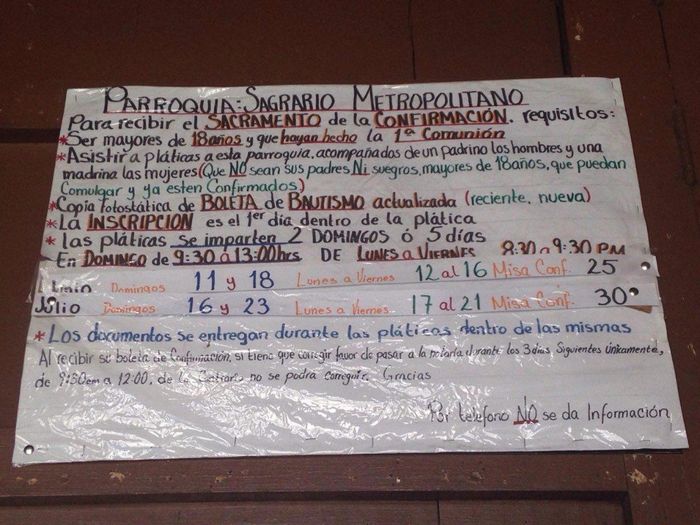 PARROQUIA: SAGRARIO METROPOLITANO
Para recibir el SACRAMENTO de la CONFIRMACIÓN. requisitos:
*Ser mayores de 18 años y que hayan hecho la 1ª Comunión
*Asistir a pláticas a esta parroquia, acompañados de un padrino los hombres y una
madrina las mujeres (Que NO sean sus padres Ni suegros, mayores de 18 años, que puedan
Comulgar y ya esten Confirmados)
*Copia fotostática de BOLETA de BAUTISMO actualizada (reciente, nueva)
*LA INSCRIPCION es el 1er día dentro de la plática
* las pláticas se imparten 2 DOMINGOS ó 5 días
En DOMINGO de 9:30 á 13:00hrs DE LUNES a VIERNES 8:30 a 9:30 PM
Junio Domingos 11 y 18 Lunes a Viernes 12 al 16 Misa Conf. 25
Julio Domingos 16 y 23 Lunes a Viernes 17 al 21 Misa Conf. 30
* Los documentos se entregan durante las pláticas dentro de las mismas
Al recibir su boleta de Confirmación, si tiene que corregir favor de pasar a la notaría durante los 3 días Siguientes únicamente,
de 9:30am a 12:00. de lo no se podrá corregir. Gracias
Por teléfono NO se da Información